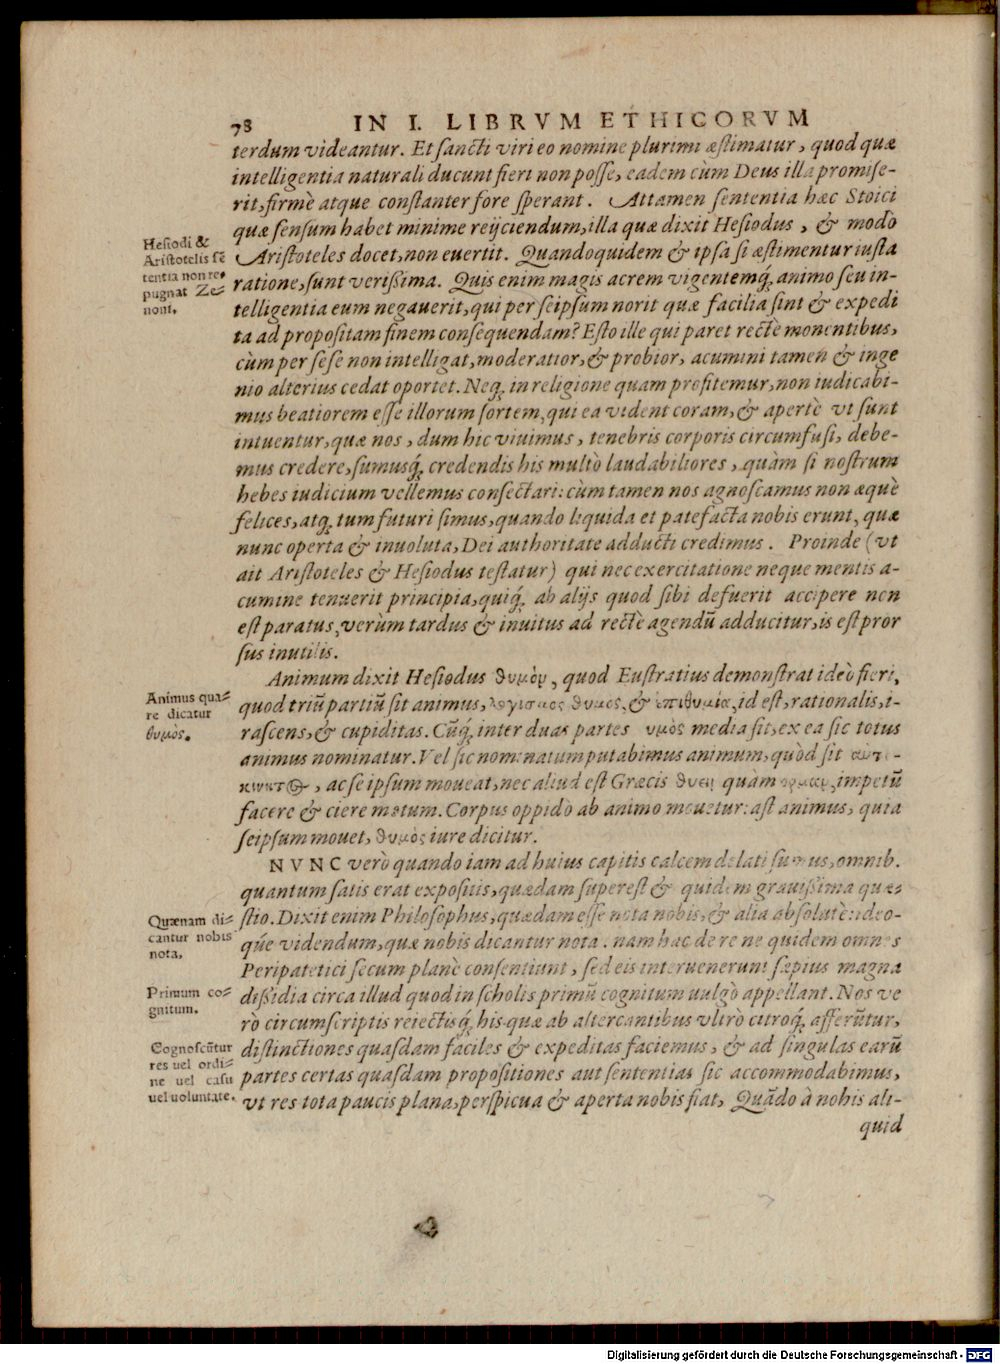 78 IN I. LIBRVM ETHICORVM
terdum videantur. Et sancti viri eo nomine plurimi æstimatur, quod quæ
intelligentia naturali ducunt fieri non posse, eadem cùm Deus illa promise-
rit, firmè atque constanter fore sperant. Attamen sententia hæc Stoici
quæ sensum habet minime reijciendum, illa quæ dixit Hesiodus, & modò
Aristoteles docet, non euertit. Quandoquidem & ipsa si æstimentur iusta
ratione, sunt verissima. Quis enim magis acrem vigentemq́; animo seu in-
telligentia eum negauerit, qui per seipsum norit quæ facilia sint & expedi
ta ad propositam finem consequendam? Esto ille qui paret rectè monentibus,
cùm per sese non intelligat, moderatior, & probior, acumini tamen & inge
nio alterius cedat oportet. Neq; in religione quam profitemur, non iudicabi-
mus beatiorem esse illorum sortem, qui ea vident coram, & apertè vt sunt
intuentur, quæ nos, dum hic viuimus, tenebris corporis circumfusi, debe-
mus credere, sumusq́; credendis his multò laudabiliores, quàm si nostrum
hebes iudicium vellemus consectari: cùm tamen nos agnoscamus non æquè
felices, atq; tum futuri simus, quando liquida et patefacta nobis erunt, quæ
nunc operta & inuoluta, Dei authoritate adducti credimus. Proinde (vt
ait Aristoteles & Hesiodus testatur) qui nec exercitatione neque mentis a-
cumine tenuerit principia, quiq́; ab alijs quod sibi defuerit accipere non
est paratus, verùm tardus & inuitus ad rectè agendũ adducitur, is est pror
sus inutilis.
Animum dixit Hesiodus θυμὸν, quod Eustratius demonstrat ideò fieri,
quod triũ partiũ sit animus, λογισμος θυμος, & ἐπιθυμία, id est, rationalis, i-
rascens, & cupiditas. Cũq́; inter duas partes υμὸς media sit, ex ea sic totus
animus nominatur. Vel sic nominatum putabimus animum, quòd sit αυτι-
κινητ@, ac seipsum moueat, nec aliud est Græcis θυειν quàm ορμαν, impetũ
facere & ciere motum. Corpus oppidò ab animo mouetur: ast animus, quia
seipsum mouet, θυμὸς iure dicitur.
NVNC verò quando iam ad huius capitis calcem delati sumus, omnib.
quantum satis erat expositis, quædam superest & quidem grauissima quæ-
stio. Dixit enim Philosophus, quædam esse nota nobis, & alia absolutè: ideo-
qúe videndum, quæ nobis dicantur nota. nam hac de re ne quidem omnes
Peripatetici secum planè consentiunt, sed eis interuenerunt sæpius magna
dissidia circa illud quod in scholis primũ cognitum uulgò appellant. Nos ve
rò circumscriptis reiectisq́; his quæ ab altercantibus vltrò citroq́; afferũtur,
distinctiones quasdam fáciles & expeditas faciemus, & ad singulas earũ
partes certas quasdam propositiones aut sententias sic accommodabimus,
vt res tota paucis plana, perspicua & aperta nobis fiat, Quãdo à nobis ali-
quid
Hesiodi &
Aristotelis sẽ
tentia non re-
pugnat Ze-
noni.
Animus qua-
re dicatur
θυμὸς.
Quænam di-
cantur nobis
nota.
Primum co-
gnitum.
Cognoscũtur
res uel ordi-
ne uel casu
uel uoluntate.
Digitalisierung gefördert durch die Deutsche Forschungsgemeinschaft - DFG